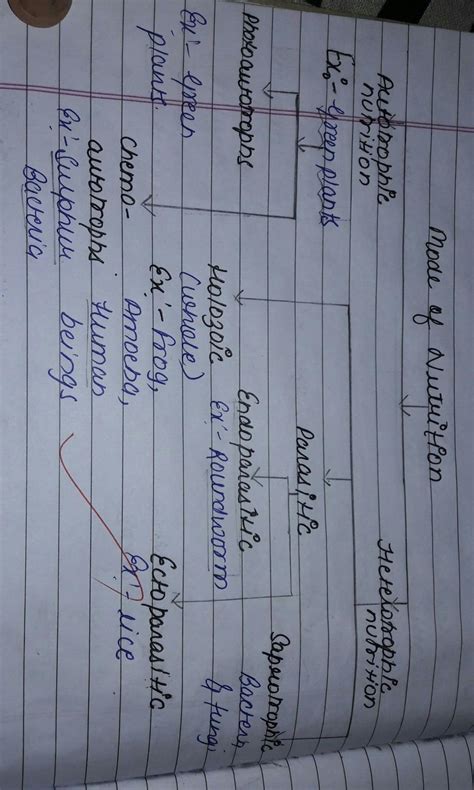 Mode of Nutrition
Autotrophic
nutrition
Ex:- Green plants
Heterotrophic
nutrition
Photoautotrophs
Ex:- Green
plants.
Chemo-
autotrophs
Ex:- Sulphur
Bacteria
Holozoic
(whole)
Ex:- Frog,
Amoeba,
Human
beings
Parasitic
Endoparasitic
Ex:- Roundworm
Ectoparasitic
Ex:- lice
Saprotrophic
Bacteria
& fungi